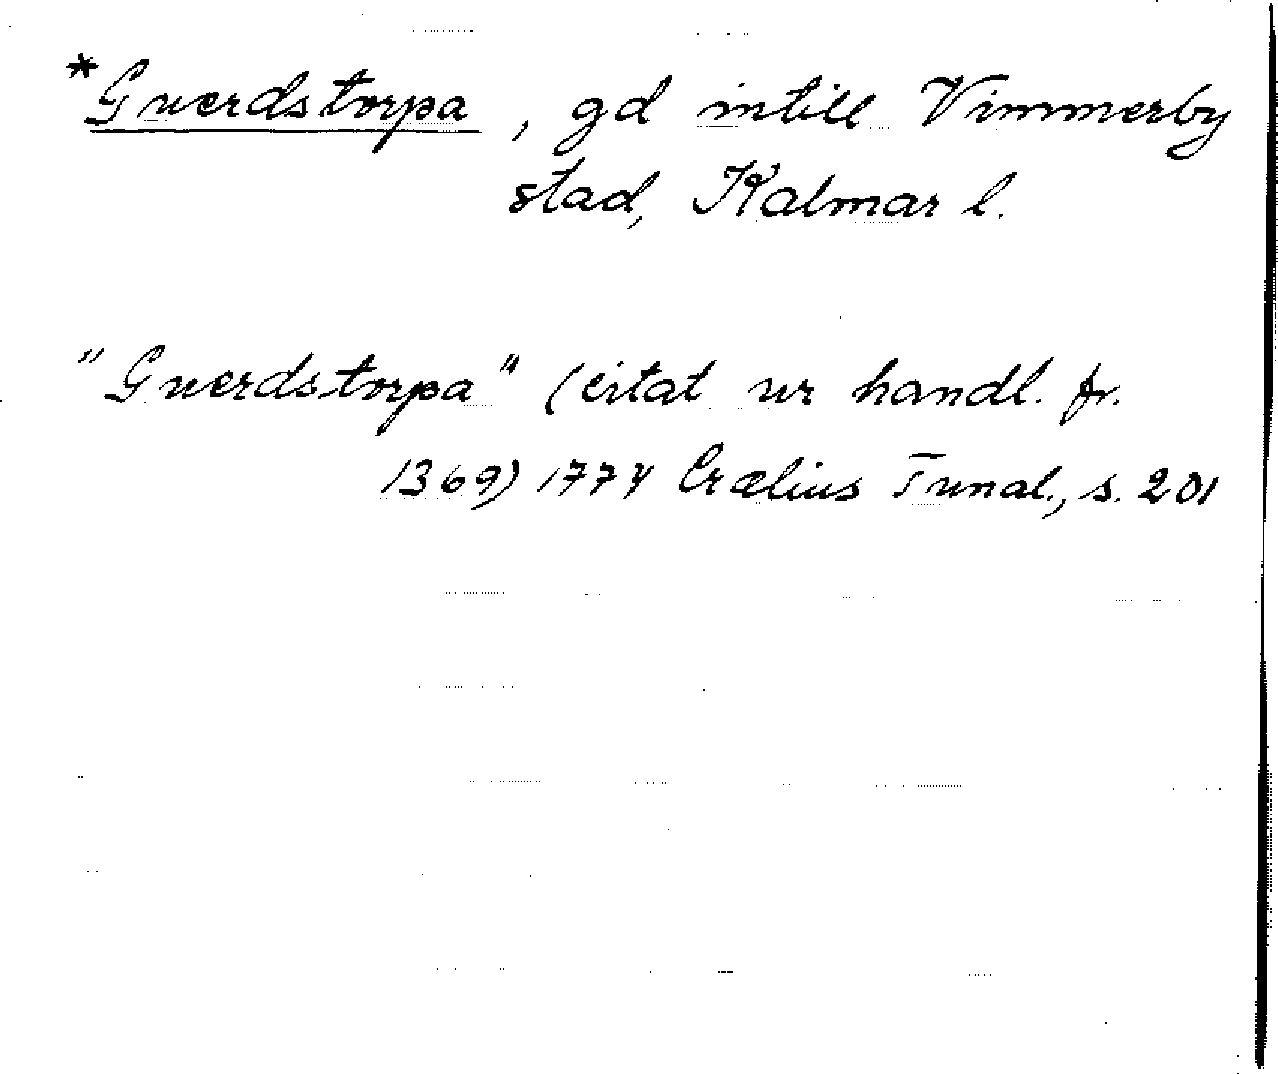 *Guerdstorpa, gd intill Vimmerby
stad, Kalmar l.
"Guerdstorpa" (citat ur handl. fr.
1369) 1774 Crælius Tunal., s. 201